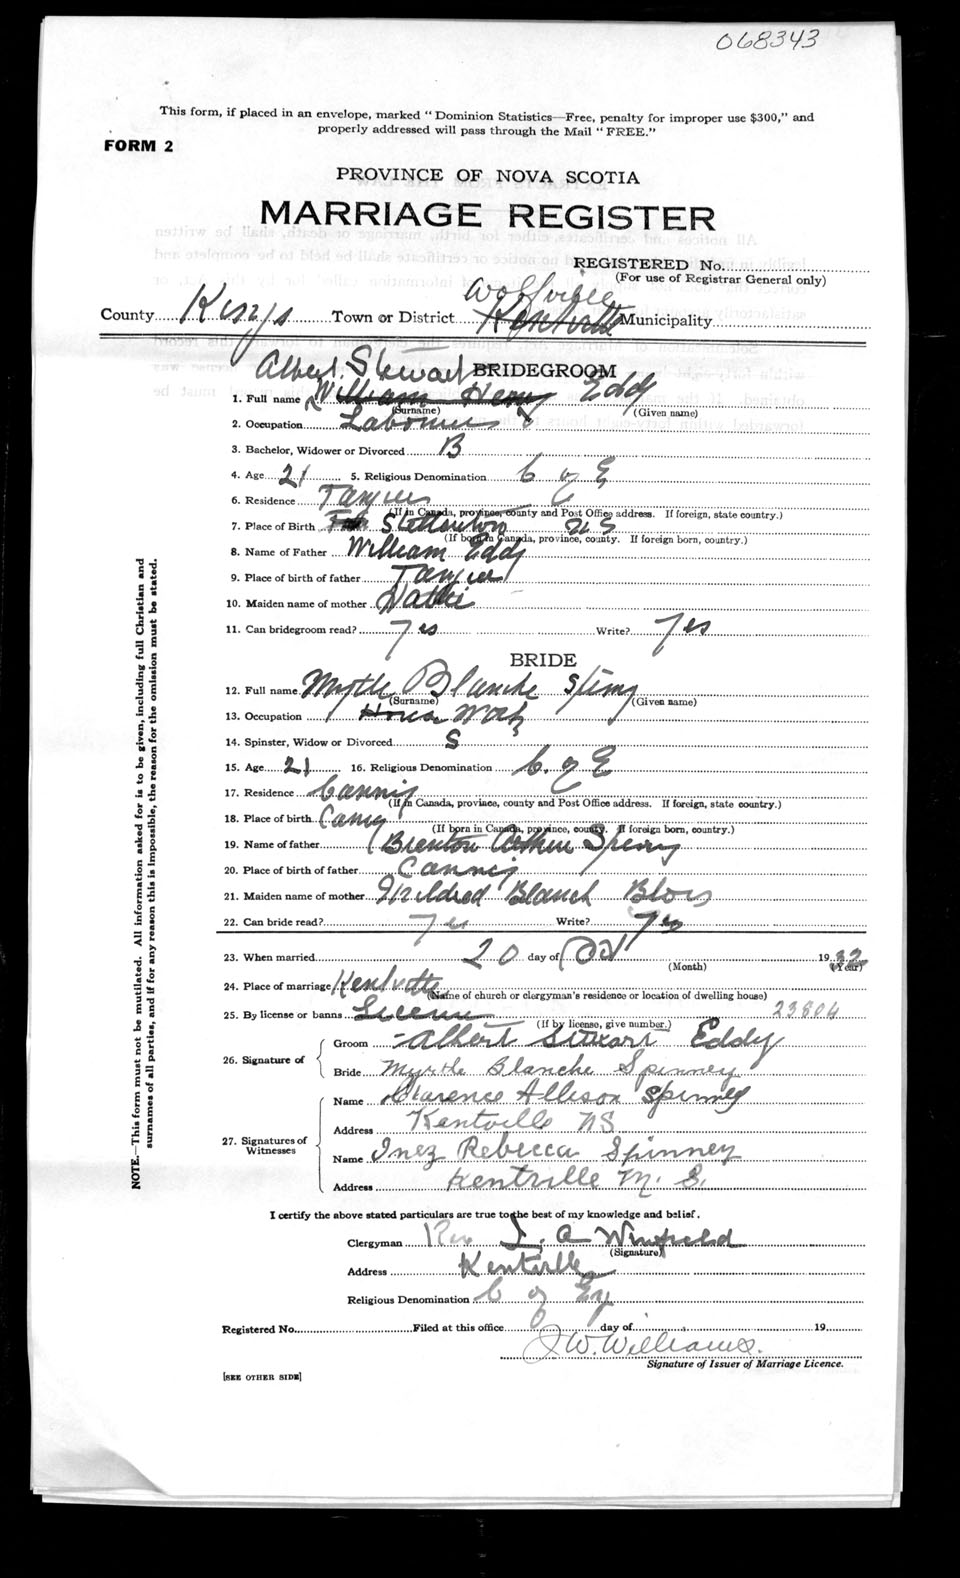 068343
This form, if placed in an envelope, marked "Dominion Statistics—Free, penalty for improper use $300," and
properly addressed will pass through the Mail "FREE."
FORM 2
PROVINCE OF NOVA SCOTIA
MARRIAGE REGISTER
REGISTERED No.
(For use of Registrar General only)
Wolfville
County Kings Town or District Kentville Municipality
Albert Stewart BRIDEGROOM
1. Full name William Henry Eddy
(Surname) (Given name)
2. Occupation Labourer
3. Bachelor, Widower or Divorced B
4. Age 21 5. Religious Denomination C of E
6. Residence Tangier
(If in Canada, province, county and Post Office address. If foreign, state country.)
7. Place of Birth NS
(If born in Canada, province, county. If foreign born, country.)
8. Name of Father William Eddy
9. Place of birth of father Tangier
10. Maiden name of mother
11. Can bridegroom read? Yes Write? Yes
BRIDE
12. Full name Myrtle Blanche
(Surname) (Given name)
13. Occupation House Work
14. Spinster, Widow or Divorced S
15. Age 21 16. Religious Denomination C. of E
17. Residence Canning
(If in Canada, province, county and Post Office address. If foreign, state country.)
18. Place of birth
(If born in Canada, province, county. If foreign born, country.)
19. Name of father Brenton Arthur
20. Place of birth of father Canning
21. Maiden name of mother Mildred Blanch Blois
22. Can bride read? Yes Write? Yes
23. When married 20 day of Oct 1932
(Month) (Year)
24. Place of marriage Kentville
(Name of church or clergyman's residence or location of dwelling house)
25. By license or banns License 23804
(If by license, give number.)
26. Signature of
Groom Albert Stewart Eddy
Bride Myrtle Blanche Spinney
27. Signatures of Witnesses
Name Clarence Allison Spinney
Address Kentville NS
Name Inez Rebecca Spinney
Address Kentville N. S.
I certify the above stated particulars are true to the best of my knowledge and belief.
Clergyman Rev L. A Winfield
(Signature)
Address Kentville
Religious Denomination C of Eng
Registered No. Filed at this office day of 19
J W. Williams.
Signature of Issuer of Marriage Licence.
[SEE OTHER SIDE]
NOTE.—This form must not be mutilated. All information asked for is to be given, including full Christian and
surnames of all parties, and if for any reason this is impossible, the reason for the omission must be stated.